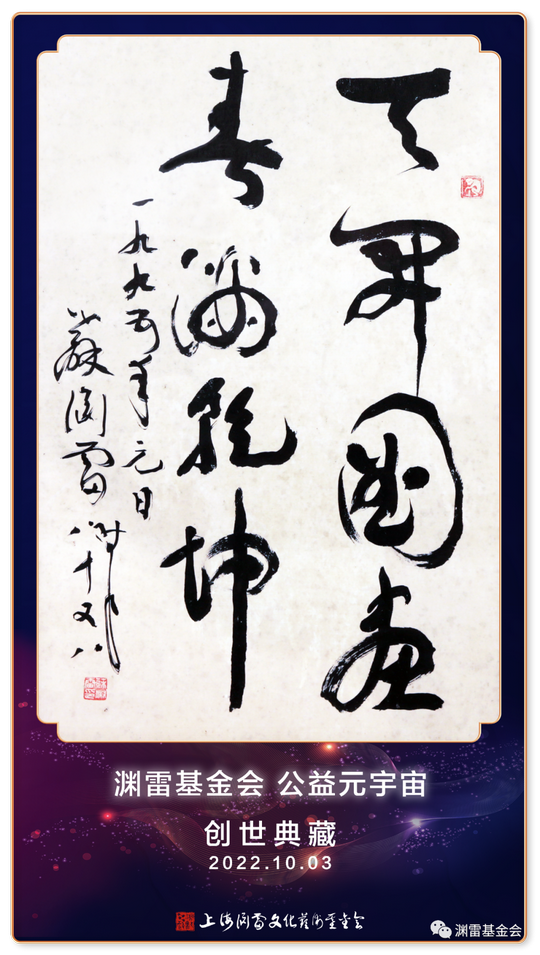 天開圖畫
春滿乾坤
一九九五年元日
蘇淵雷
渊雷基金会 公益元宇宙
创世典藏
2022.10.03
上海渊雷文化艺术基金会
渊雷基金会